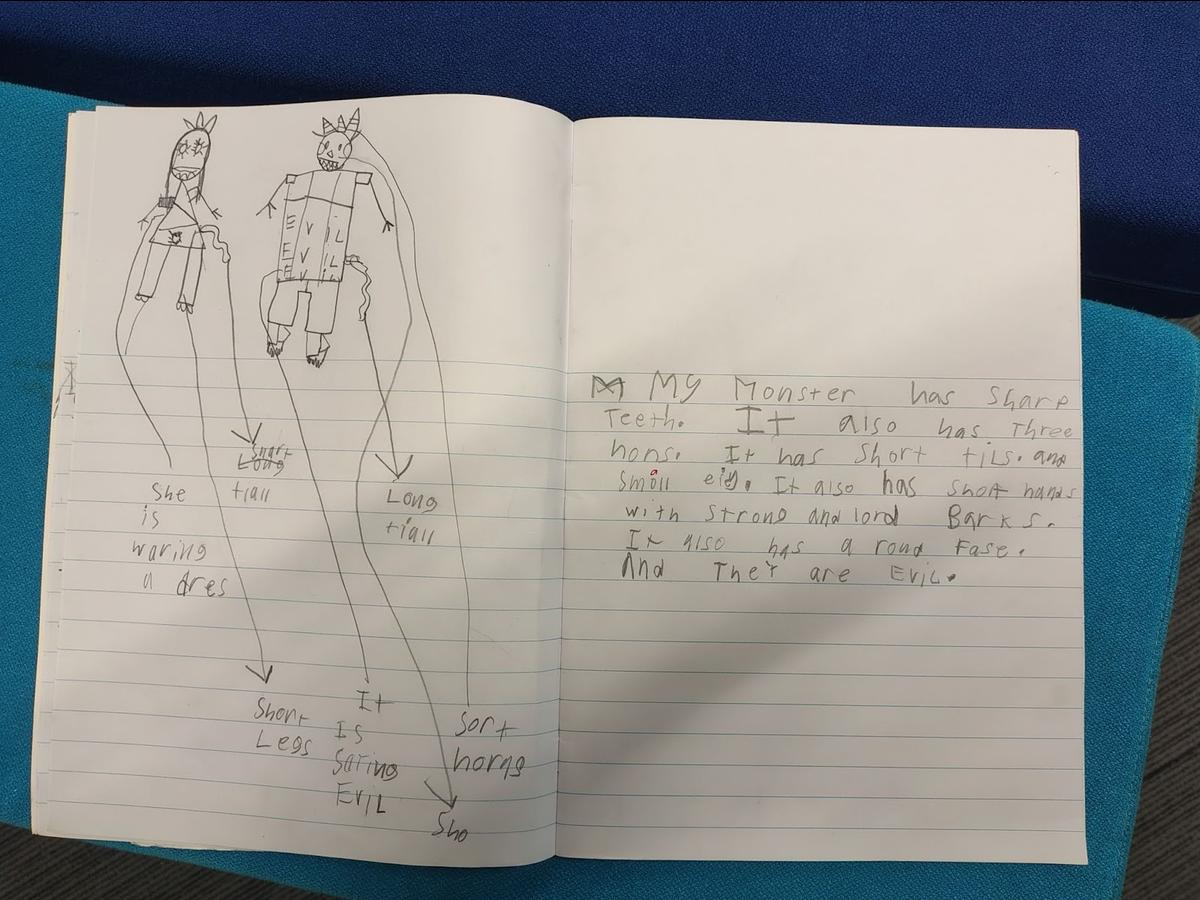 E V iL
E V iL
E V iL
She
is
waring
a dres
Short
Long
tiall
Long
tiall
Short
Legs
It
Is
Saring
EviL
Sho
Sort
horns
My Monster has Sharp
Teeth. It also has Three
hons. It has Short tiLs. and
Small eig. It also has Short hands
with Strong and lord Barks.
It also has a roud Fase.
And They are EviL.